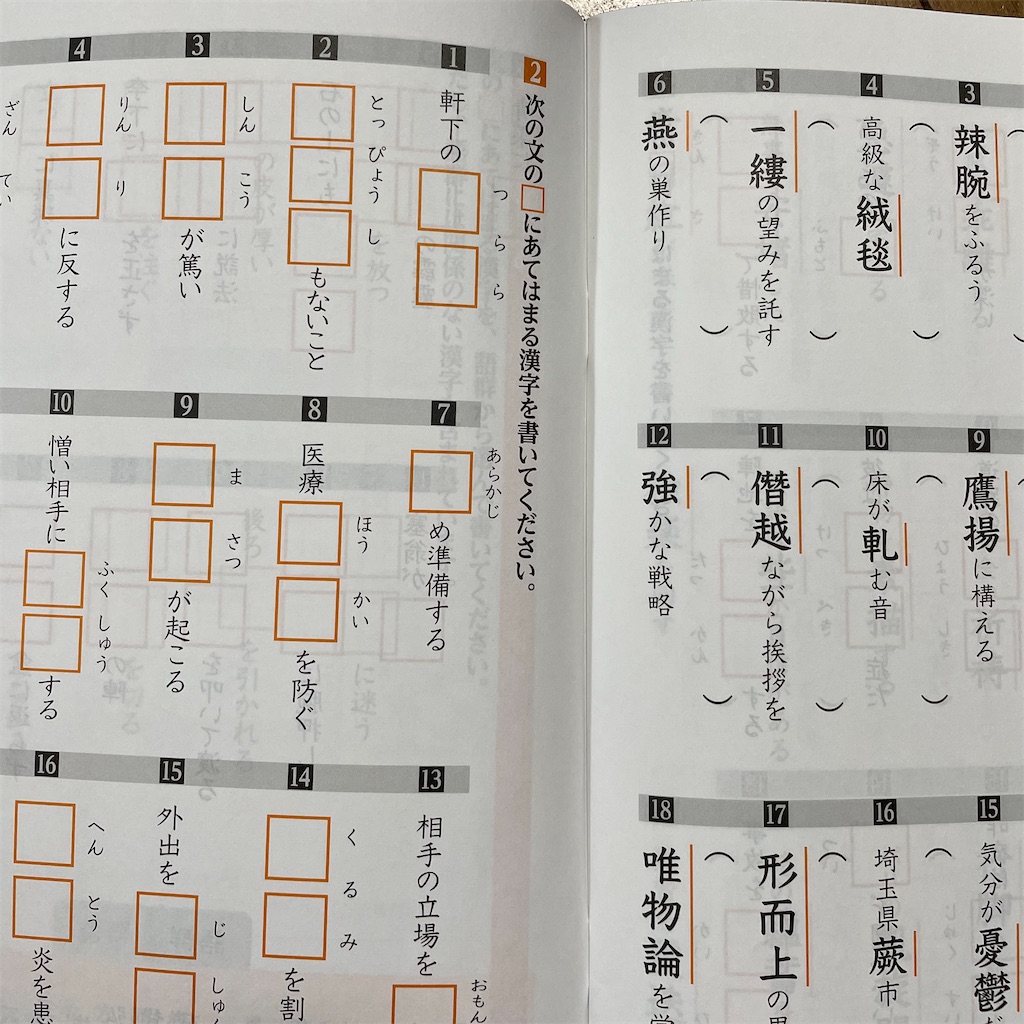 3
辣腕をふるう
4
高級な絨毯
5
一縷の望みを託す
6
燕の巣作り
9
鷹揚に構える
10
床が軋む音
11
僭越ながら挨拶を
12
強かな戦略
15
気分が憂鬱だ
16
埼玉県蕨市
17
形而上の
18
唯物論を
2 次の文の□にあてはまる漢字を書いてください。
1
軒下の□□
つらら
2
□□□もないこと
とっぴょうし
3
□□が篤い
しんこう
4
□□に反する
りんり
ざん
てい
7
□め準備する
あらかじ
8
医療□□を防ぐ
ほうかい
9
□□が起こる
まさつ
10
憎い相手に□□する
ふくしゅう
13
相手の立場を□
おもん
14
□□を割
くるみ
15
外出を□□
じしゅく
16
□□炎を患
へんとう